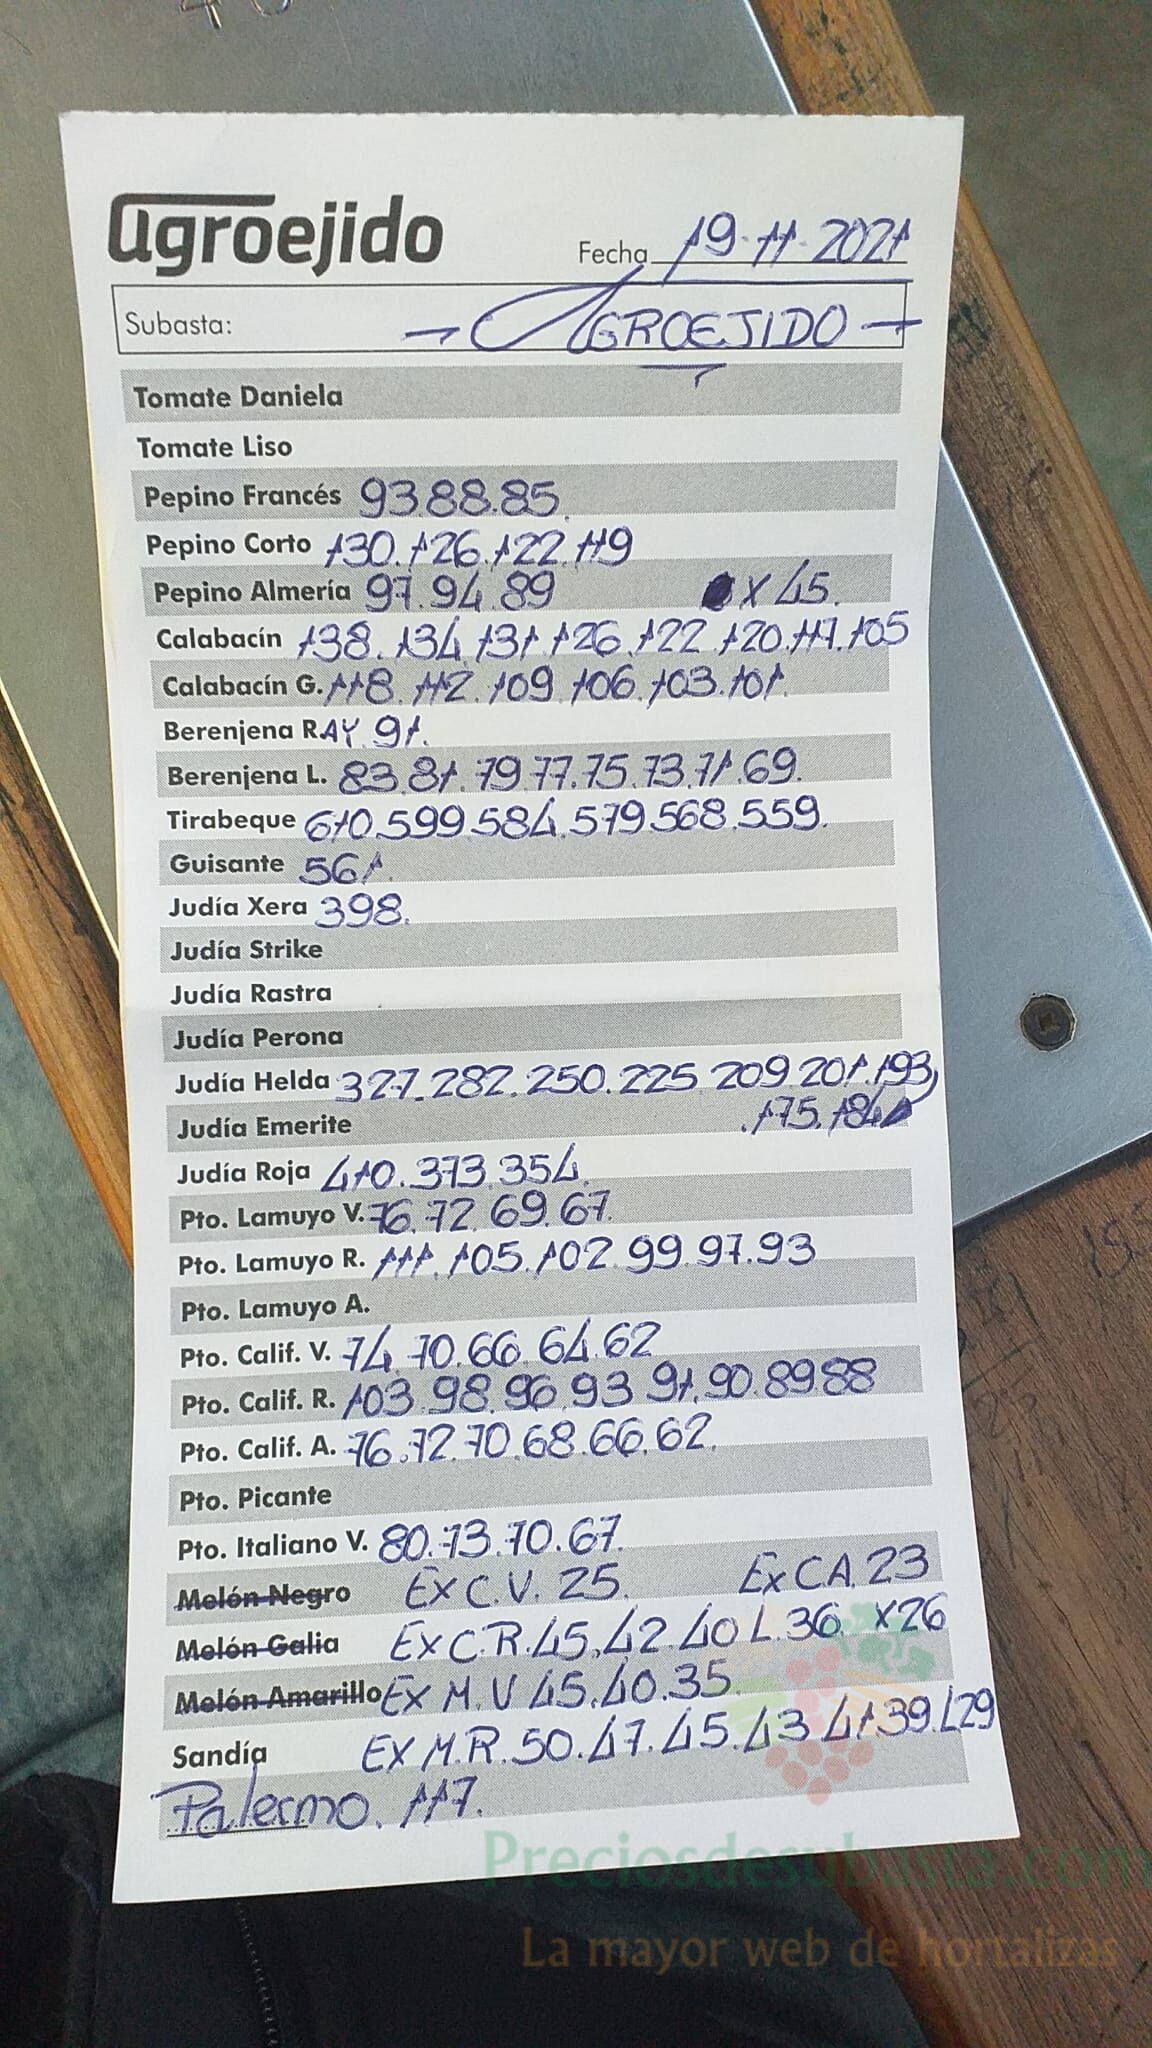 agroejido
Fecha 19-11-2021
Subasta: AGROEJIDO
Tomate Daniela
Tomate Liso
Pepino Francés 93.88.85.
Pepino Corto 130.126.122.119
Pepino Almería 97.94.89 X 45.
Calabacín 138.134.131.126.122.120.117.105
Calabacín G. 118.112.109.106.103.101.
Berenjena RAY 91.
Berenjena L. 83.81.79.77.75.73.71.69.
Tirabeque 610.599.584.579.568.559.
Guisante 561.
Judía Xera 398.
Judía Strike
Judía Rastra
Judía Perona
Judía Helda 327.282.250.225 209 201.193
Judía Emerite .175.184
Judía Roja 410.373.354.
Pto. Lamuyo V. 76.72.69.67.
Pto. Lamuyo R. 111.105.102.99.97.93
Pto. Lamuyo A.
Pto. Calif. V. 74.70.66.64.62
Pto. Calif. R. 103.98.96.93 91.90.89.88
Pto. Calif. A. 76.72.70.68.66.62.
Pto. Picante
Pto. Italiano V. 80.73.70.67.
Melón Negro Ex C.V. 25. Ex C.A. 23
Melón Galia Ex C.R. 45.42.40 L.36 X26
Melón Amarillo Ex M.V 45.40.35.
Sandía EX M.R. 50.47.45.43 41.39.L29
Palermo. 117.
Preciosdesubasta.com
La mayor web de hortalizas